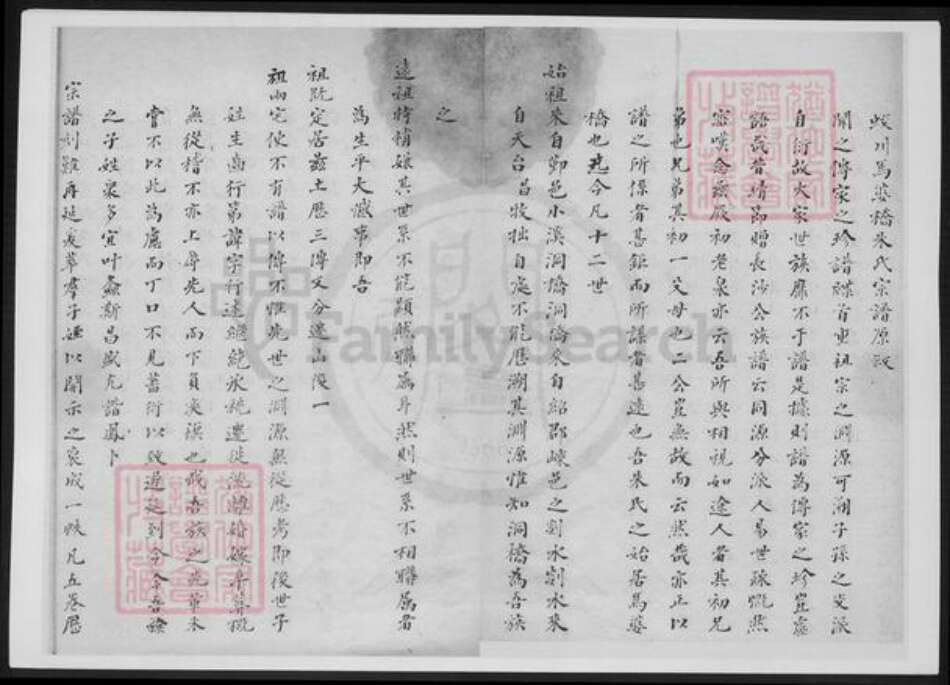 蛟川馬婆橋朱氏宗譜原叙
聞之傳家之珍譜牒首重祖宗之淵源可溯子孫之支派
自衍故大家世族靡不于譜是據則譜為傳家之珍豈虛
語哉昔靖節贈長沙公族譜云同源分派人易世踈慨然
寤嘆念茲厥初老泉亦云吾所與相視如途人者其初兄
弟也兄弟其初一父母也二公豈無故而云然哉亦正以
譜之所係者甚鉅而所謀者甚遠也吾朱氏之始居馬婆
橋也迄今凡十二世
始祖朱自鄞邑小溪洞橋洞橋來自紹郡嵊邑之剡水剡水來
自天台昌牧拙自施不能歷溯其淵源惟知洞橋為吾族
之
遠祖特稍娘其世系不能顯然聯屬耳然則世系不相聯屬者
為生平大憾事即吾
祖既定居茲土歷三傳又分遷山後一
祖兩宅使不有譜以傳不惟先世之淵源無從歷考即後世子
姓生齒行第諱字行述繼絕承祧遷徙流離婚嫁喪葬概
無從稽不亦上辱先人而下負後裔也哉吾族之先輩未
嘗不以此為慮而丁口不見蕃衍以致遲延到今今吾族
之子姓衆多宜叶螽斯昌盛允諧鳳卜
宗譜刻難再延爰萃群子姪以開示之裒成一帙凡五卷歷
FamilySearch